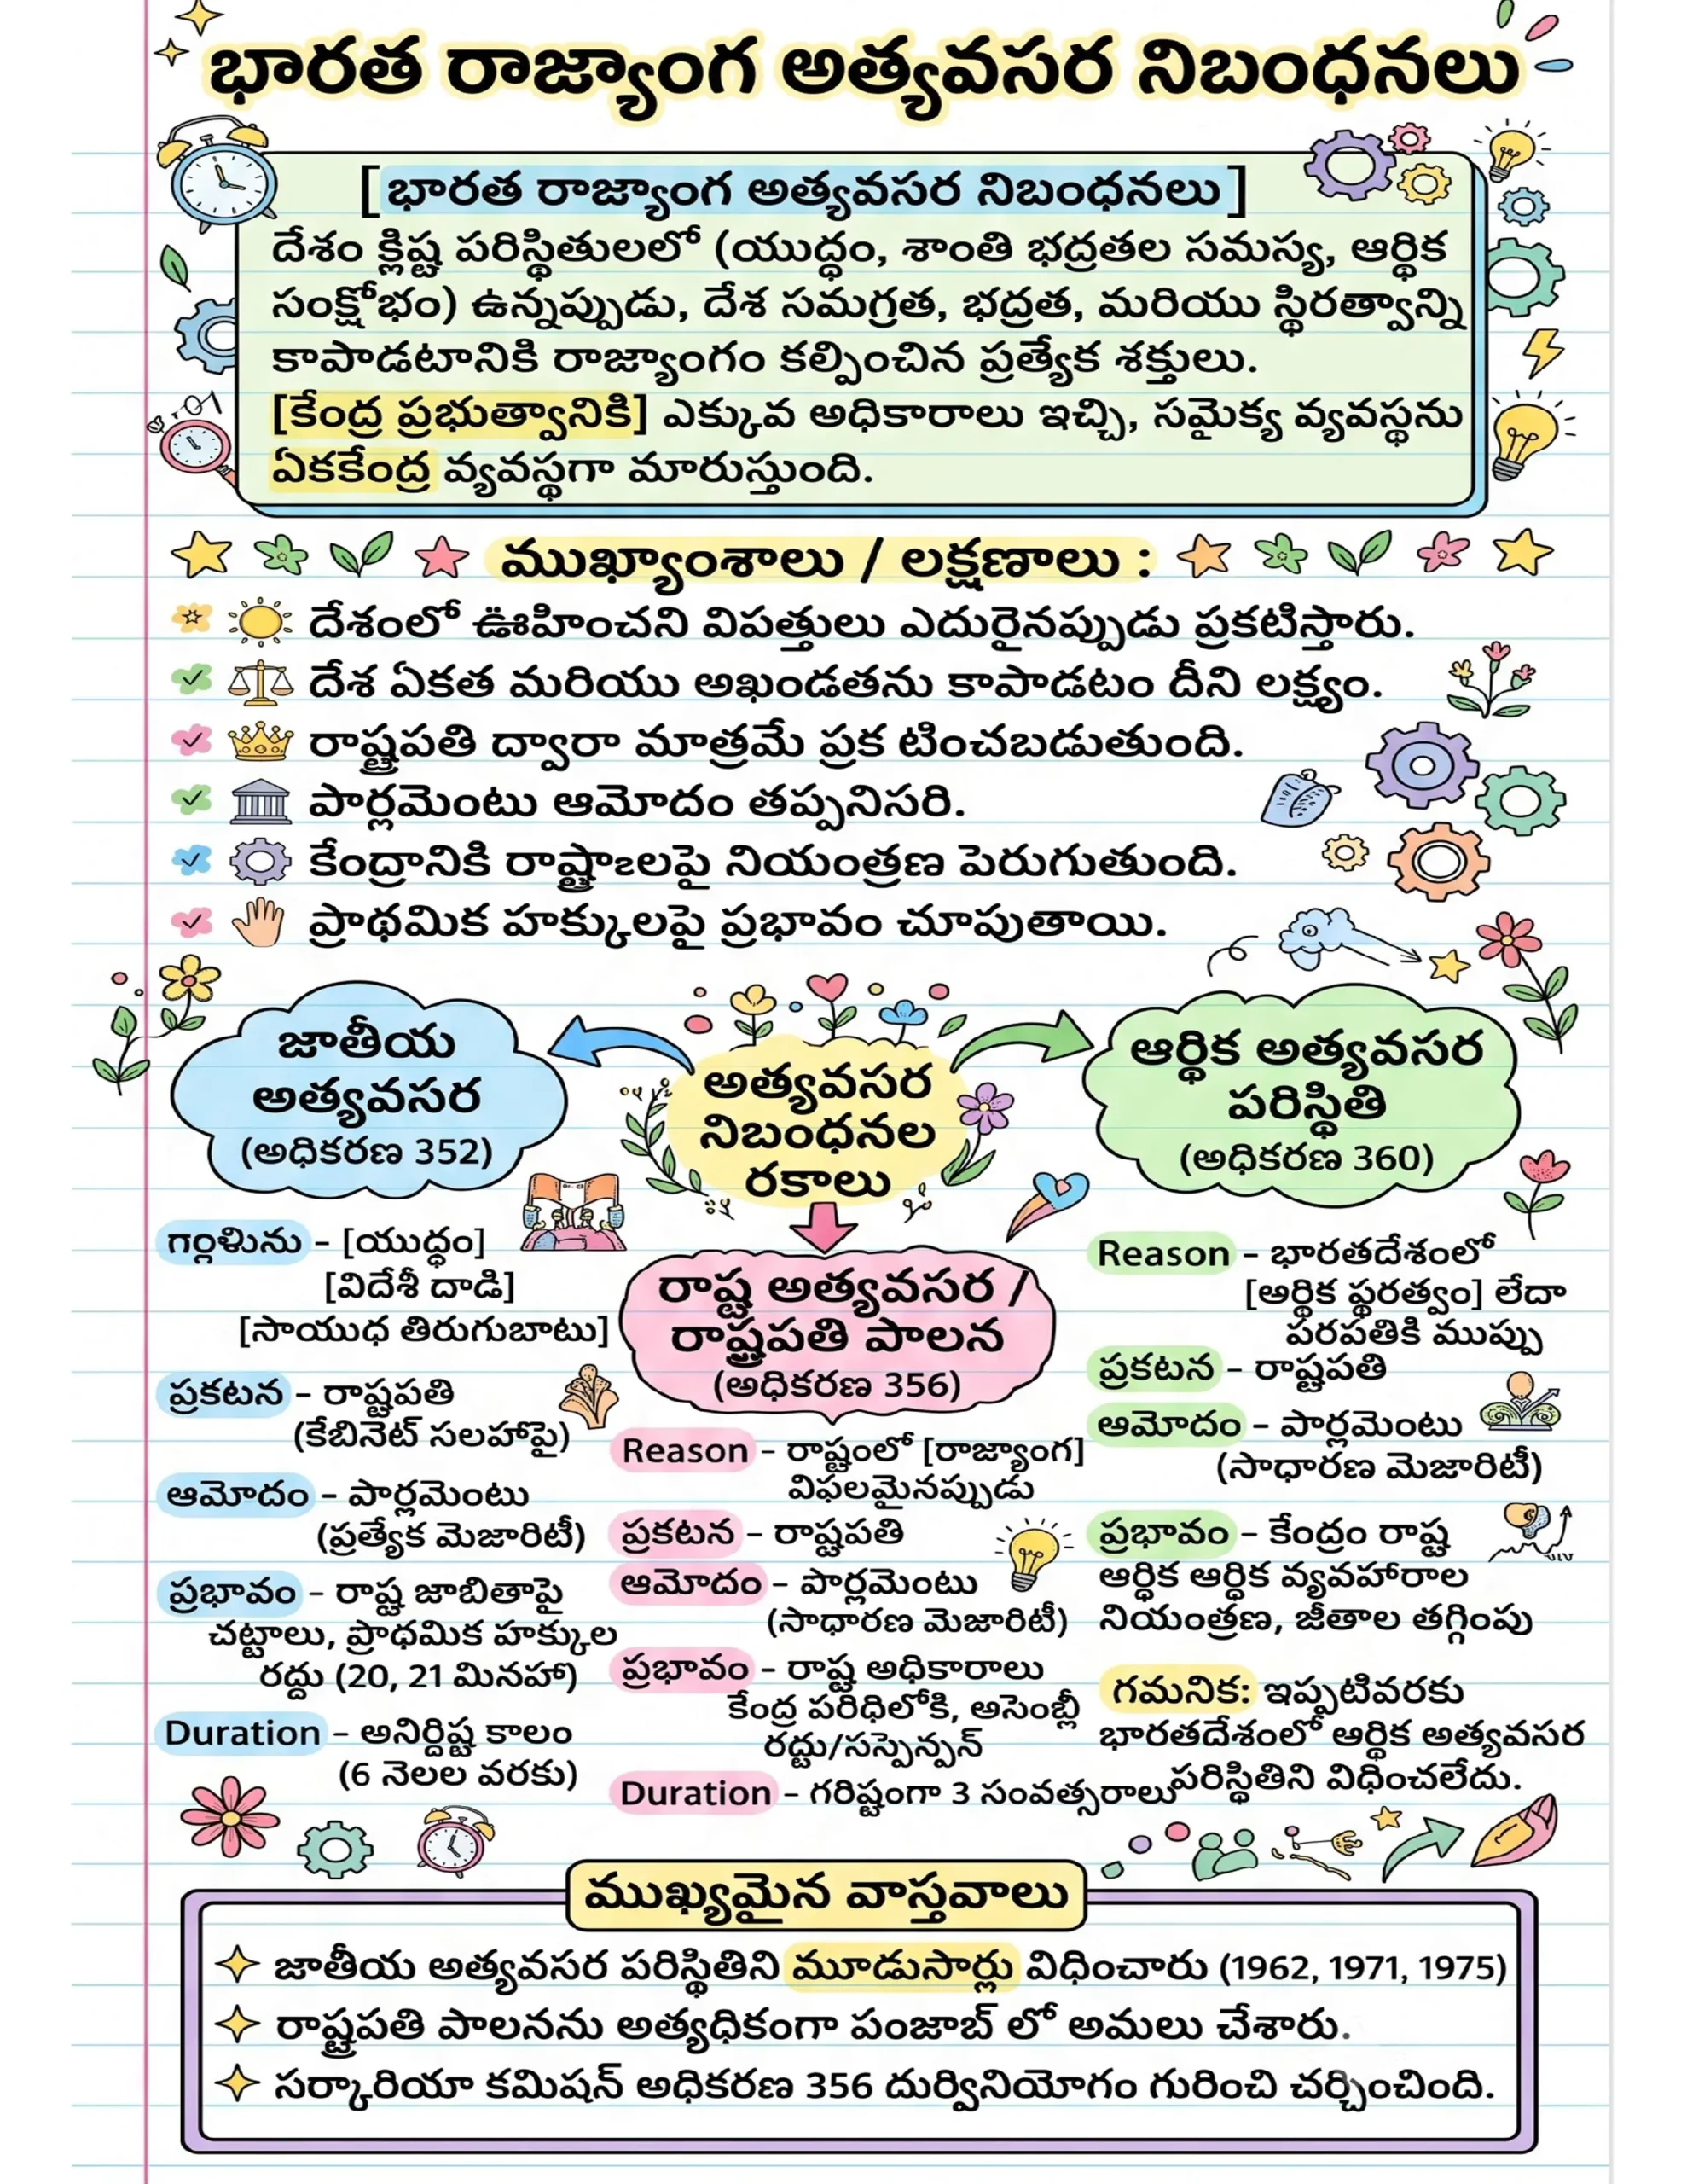 భారత రాజ్యాంగ అత్యవసర నిబంధనలు
[భారత రాజ్యాంగ అత్యవసర నిబంధనలు]
దేశం క్లిష్ట పరిస్థితులలో (యుద్ధం, శాంతి భద్రతల సమస్య, ఆర్థిక
సంక్షోభం) ఉన్నప్పుడు, దేశ సమగ్రత, భద్రత, మరియు స్థిరత్వాన్ని
కాపాడటానికి రాజ్యాంగం కల్పించిన ప్రత్యేక శక్తులు.
[కేంద్ర ప్రభుత్వానికి] ఎక్కువ అధికారాలు ఇచ్చి, సమైక్య వ్యవస్థను
ఏకకేంద్ర వ్యవస్థగా మారుస్తుంది.
ముఖ్యాంశాలు / లక్షణాలు :
దేశంలో ఊహించని విపత్తులు ఎదురైనప్పుడు ప్రకటిస్తారు.
దేశ ఏకత మరియు అఖండతను కాపాడటం దీని లక్ష్యం.
రాష్ట్రపతి ద్వారా మాత్రమే ప్రక టించబడుతుంది.
పార్లమెంటు ఆమోదం తప్పనిసరి.
కేంద్రానికి నియంత్రణ పెరుగుతుంది.
ప్రాథమిక హక్కులపై ప్రభావం చూపుతాయి.
అత్యవసర
నిబంధనల
రకాలు
జాతీయ
అత్యవసర
(అధికరణ 352)
– [యుద్ధం]
[విదేశీ దాడి]
[సాయుధ తిరుగుబాటు]
ప్రకటన – రాష్టపతి
(కేబినెట్ సలహాపై)
ఆమోదం – పార్లమెంటు
(ప్రత్యేక మెజారిటీ)
ప్రభావం – రాష్ట జాబితాపై
చట్టాలు, ప్రాథమిక హక్కుల
రద్దు (20, 21 మినహా)
Duration – అనిర్దిష్ట కాలం
(6 నెలల వరకు)
రాష్ట అత్యవసర /
రాష్ట్రపతి పాలన
(అధికరణ 356)
Reason – రాష్టంలో [రాజ్యాంగ]
విఫలమైనప్పుడు
ప్రకటన – రాష్టపతి
ఆమోదం – పార్లమెంటు
(సాధారణ మెజారిటీ)
ప్రభావం – రాష్ట అధికారాలు
కేంద్ర పరిధిలోకి, అసెంబ్లీ
రద్టు/సస్పెన్పన్
Duration – గరిష్టంగా 3 సంవత్సరాలు
ఆర్థిక అత్యవసర
పరిస్థితి
(అధికరణ 360)
Reason – భారతదేశంలో
[అర్థిక లేదా
పరపతికి ముప్పు
ప్రకటన – రాష్టపతి
ఆమోదం – పార్లమెంటు
(సాధారణ మెజారిటీ)
ప్రభావం – కేంద్రం రాష్ట
ఆర్థిక ఆర్థిక వ్యవహారాల
నియంత్రణ, జీతాల తగ్గింపు
గమనిక: ఇప్పటివరకు
భారతదేశంలో ఆర్థిక అత్యవసర
పరిస్థితిని విధించలేదు.
ముఖ్యమైన వాస్తవాలు
జాతీయ అత్యవసర పరిస్థితిని మూడుసార్లు విధించారు (1962, 1971, 1975)
రాష్ట్రపతి పాలనను అత్యధికంగా పంజాబ్ లో అమలు చేశారు.
సర్కారియా కమిషన్ అధికరణ 356 దుర్వినియోగం గురించి చర్చించింది.